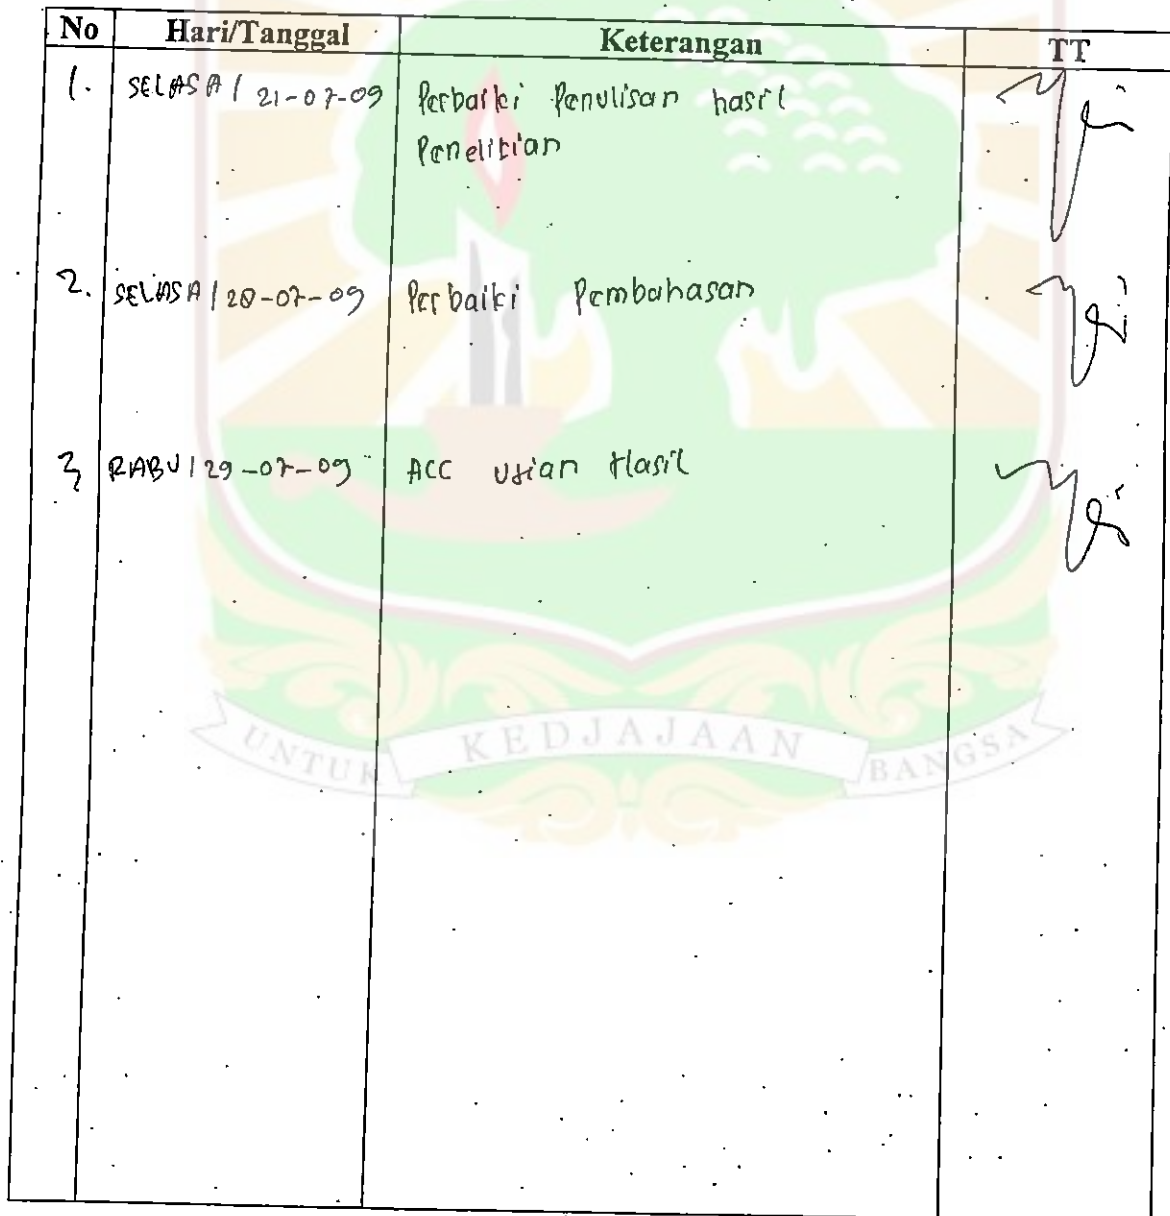 No Hari/Tanggal Keterangan TT
1. SELASA / 21-07-09 Perbaiki Penulisan hasil
Penelitian
2. SELASA / 28-07-09 Perbaiki Pembahasan
3. RABU / 29-07-09 ACC Ujian Hasil
UNTUK KEDJAJAAN BANGSA